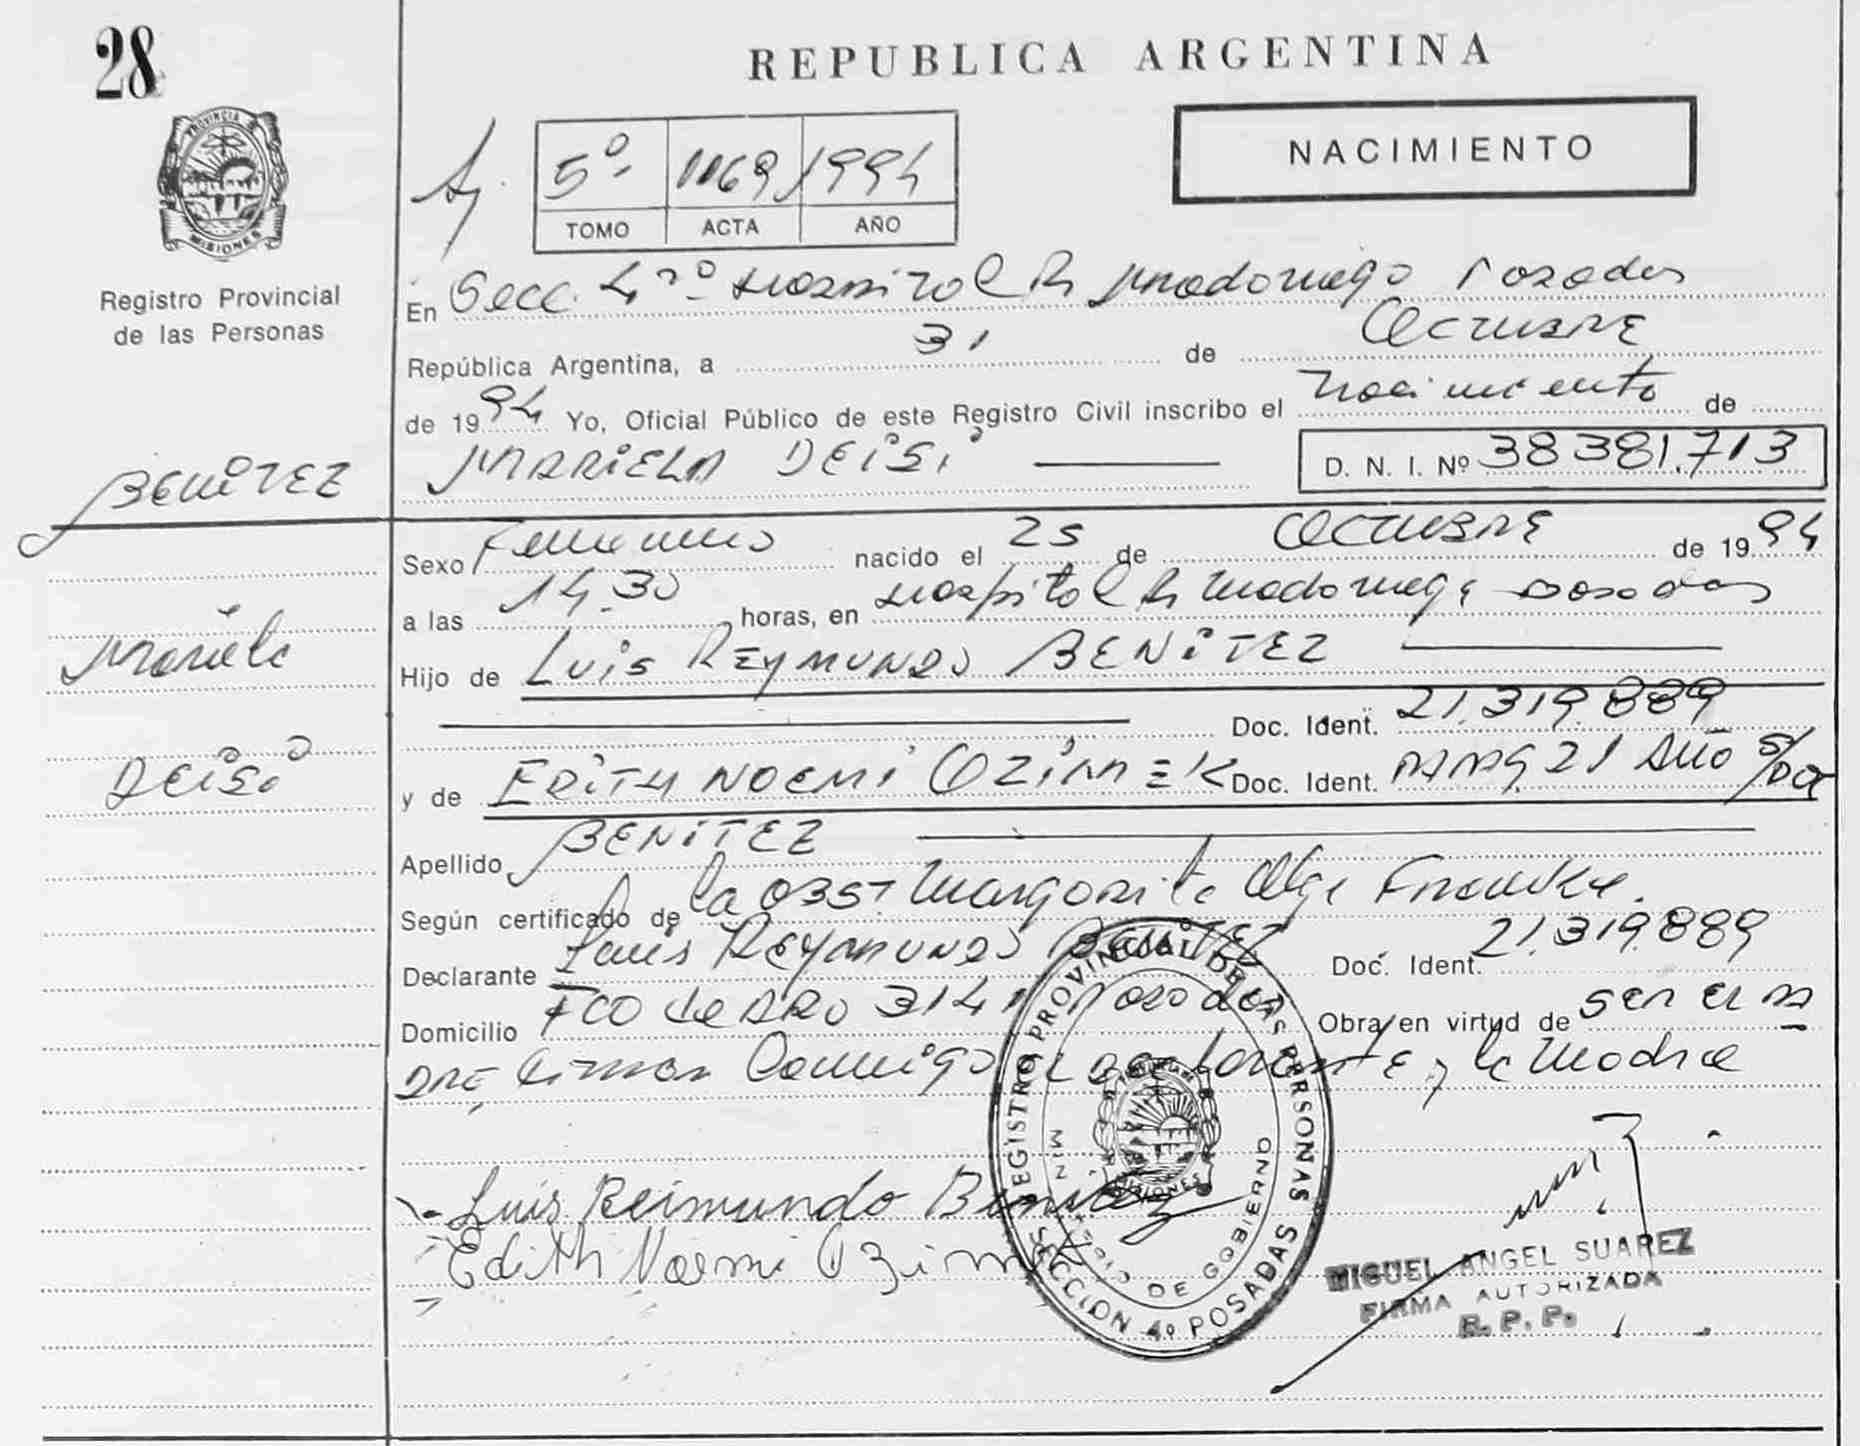 28
REPUBLICA ARGENTINA
PROVINCIA DE MISIONES
Registro Provincial
de las Personas
5º 1169 1994
TOMO ACTA AÑO
NACIMIENTO
En Secc. 4º Hospital R Madariaga Posadas
República Argentina, a 31 de Octubre
de 1994 Yo, Oficial Público de este Registro Civil inscribo el nacimiento de
MARIELA DEISI D. N. I. Nº 38381.713
BENITEZ
Mariela
Deisi
Sexo Femenino nacido el 25 de OCTUBRE de 1994
a las 14.30 horas, en Hospital R Madariaga Posadas
Hijo de LUIS REYMUNDO BENITEZ
Doc. Ident. 21.319.889
y de EDITH NOEMI OZIMEK Doc. Ident. 21 AÑO
Apellido BENITEZ
Según certificado de la OBST Margarita Olga
Declarante Luis REYMUNDO BENITEZ Doc. Ident. 21.319.889
Domicilio FCO de ARO 314 Posadas Obra en virtud de ser el
PADRE firman Conmigo el declarante y la Madre
Luis Reimundo Benitez
Edith Noemi Ozimek
REGISTRO PROVINCIAL DE LAS PERSONAS
MINISTERIO DE GOBIERNO
MISIONES
SECCION 4º POSADAS
MIGUEL ANGEL SUAREZ
FIRMA AUTORIZADA
R. P. P.